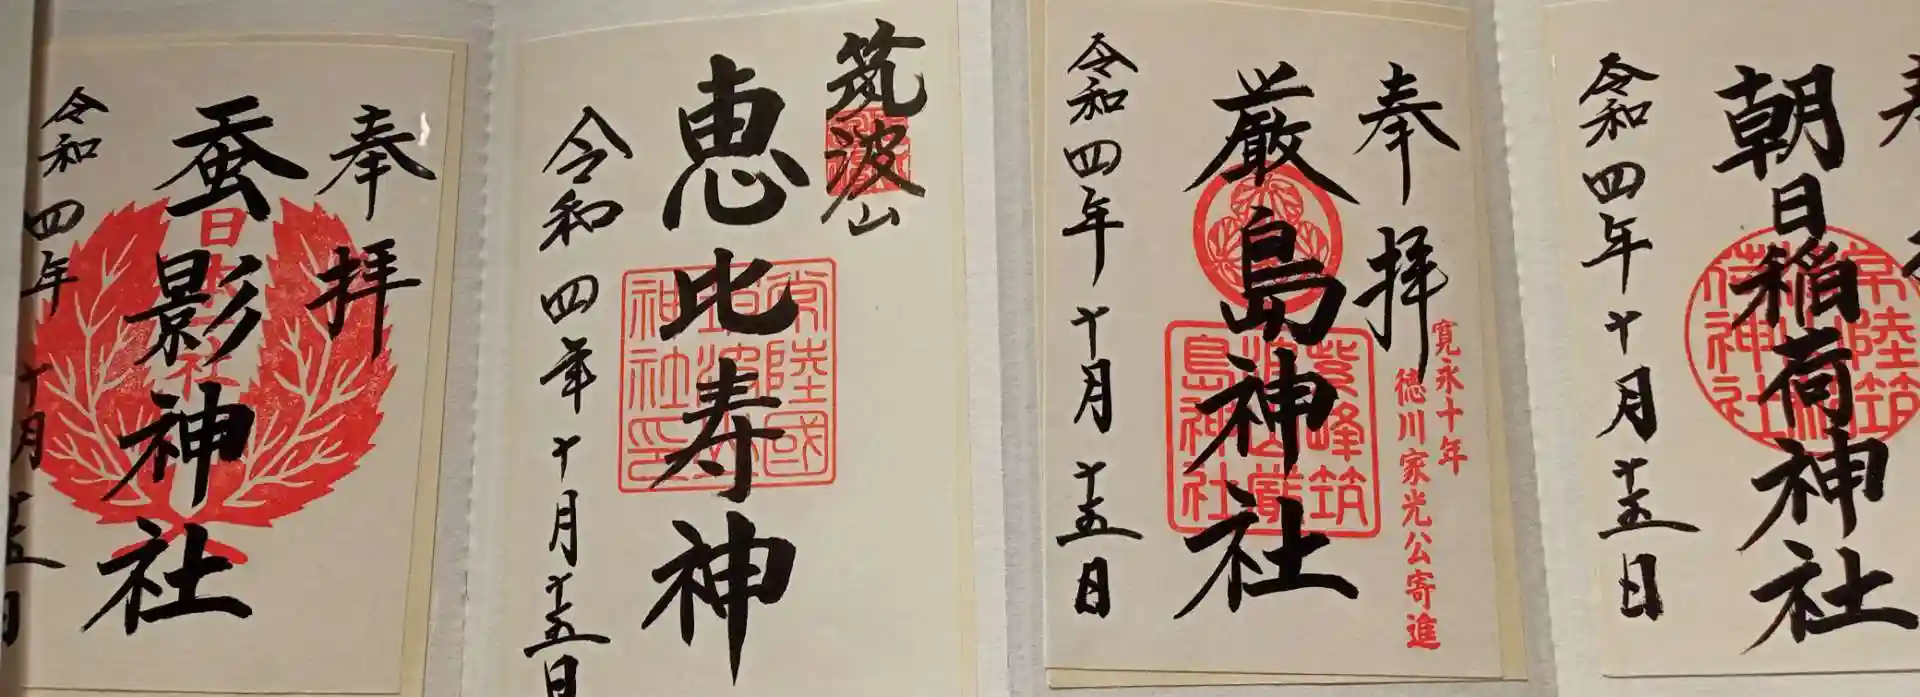 奉拝
蚕影神社
日本一社
令和四年十月十五日
筑波山
恵比寿神
常陸國筑波山
神社印
令和四年十月十五日
奉拝
寛永十年
徳川家光公寄進
厳島神社
紫峰筑
波山厳
島神社
令和四年十月十五日
朝日稲荷神社
令和四年十月十五日